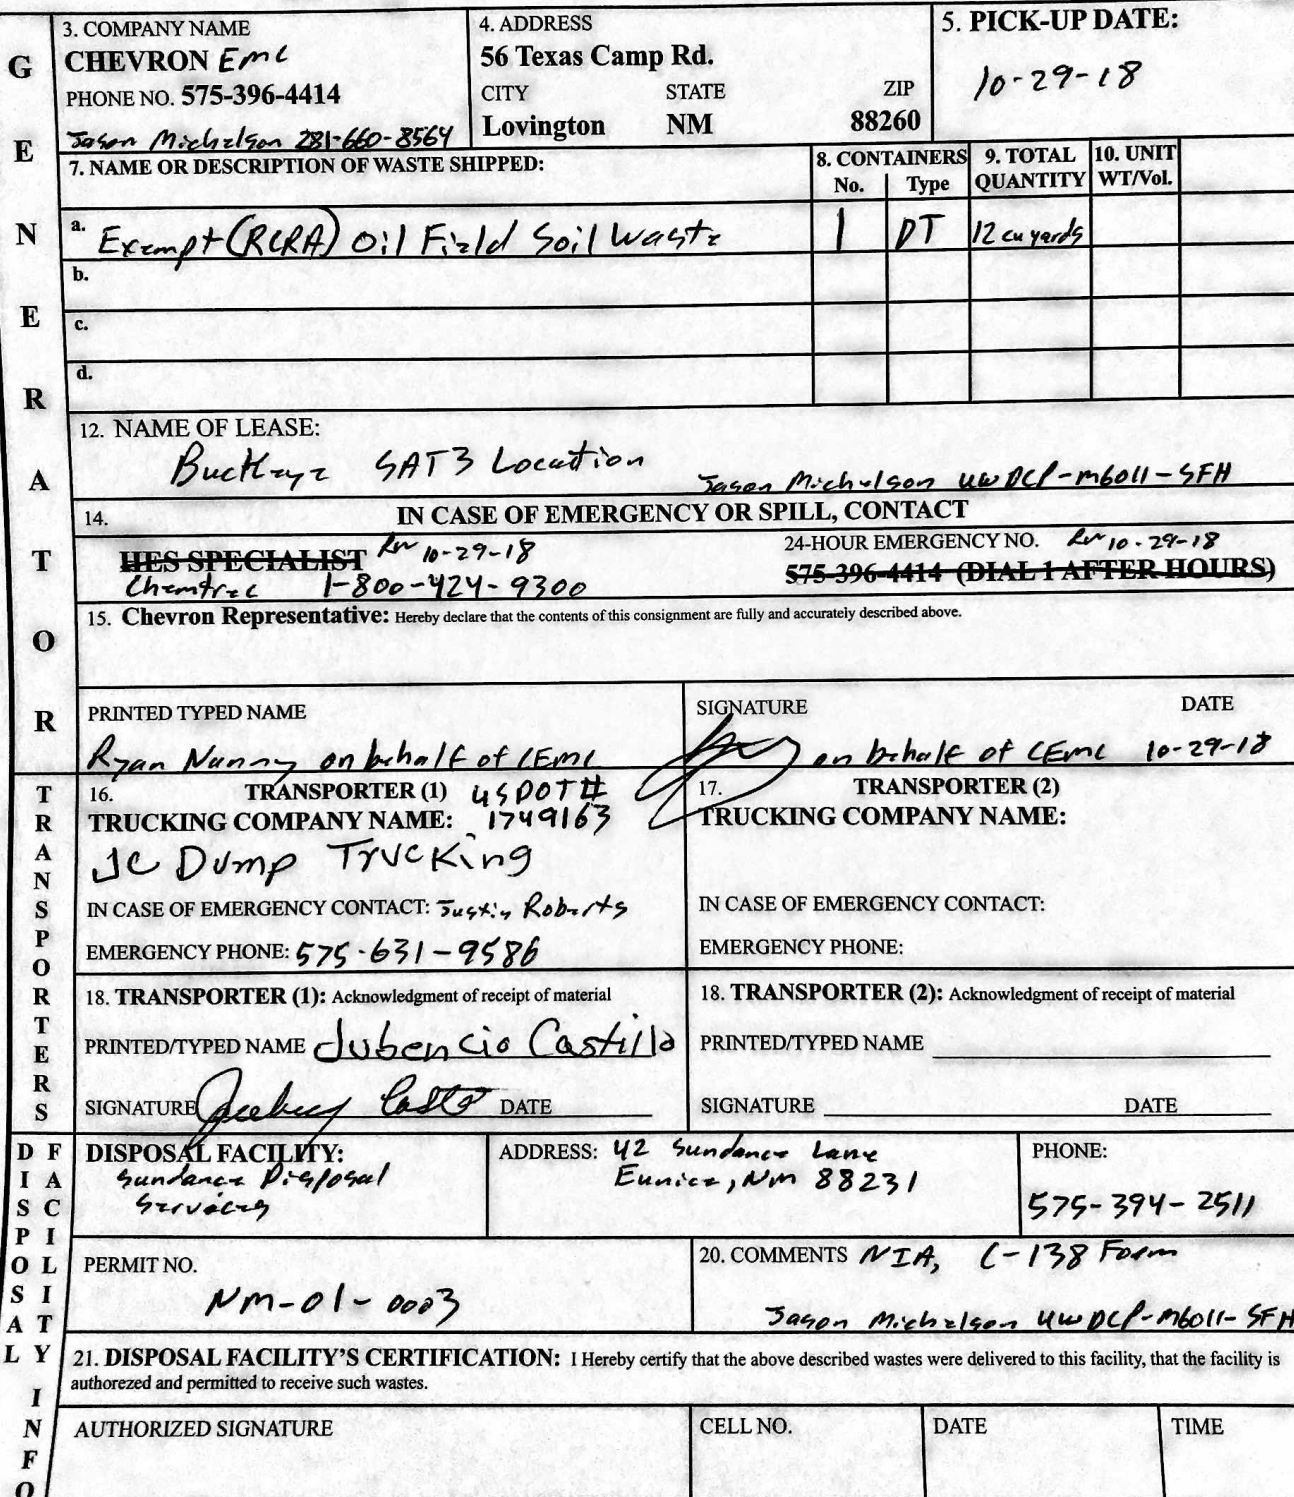 GENERATOR
3. COMPANY NAME
CHEVRON EMC
PHONE NO. 575-396-4414
Jason Michelson 281-660-8564
4. ADDRESS
56 Texas Camp Rd.
CITY STATE ZIP
Lovington NM 88260
5. PICK-UP DATE:
10-29-18
7. NAME OR DESCRIPTION OF WASTE SHIPPED:
8. CONTAINERS
No. Type
9. TOTAL
QUANTITY
10. UNIT
WT/Vol.
a. Exempt (RCRA) Oil Field Soil Waste 1 DT 12 cu yards
b.
c.
d.
12. NAME OF LEASE:
Buckeye SAT3 Location
Jason Michelson UWDCP-M6011-SFH
14. IN CASE OF EMERGENCY OR SPILL, CONTACT
HES SPECIALIST RN 10-29-18
Chemtrec 1-800-424-9300
24-HOUR EMERGENCY NO. RN 10-29-18
575-396-4414 (DIAL 1 AFTER HOURS)
15. Chevron Representative: Hereby declare that the contents of this consignment are fully and accurately described above.
PRINTED TYPED NAME
Ryan Nanny on behalf of CEMC
SIGNATURE DATE
on behalf of CEMC 10-29-18
TRANSPORTERS
16. TRANSPORTER (1) USDOT#
TRUCKING COMPANY NAME: 1749163
JC Dump Trucking
IN CASE OF EMERGENCY CONTACT: Justin Roberts
EMERGENCY PHONE: 575-631-9586
17. TRANSPORTER (2)
TRUCKING COMPANY NAME:
IN CASE OF EMERGENCY CONTACT:
EMERGENCY PHONE:
18. TRANSPORTER (1): Acknowledgment of receipt of material
PRINTED/TYPED NAME Jubencio Castillo
SIGNATURE DATE
18. TRANSPORTER (2): Acknowledgment of receipt of material
PRINTED/TYPED NAME
SIGNATURE DATE
DISPOSAL FACILITY INFO
DISPOSAL FACILITY:
Sundance Disposal
Services
ADDRESS: 42 Sundance Lane
Eunice, NM 88231
PHONE:
575-394-2511
PERMIT NO.
NM-01-0003
20. COMMENTS NIA, C-138 Form
Jason Michelson UWDCP-M6011-SFH
21. DISPOSAL FACILITY'S CERTIFICATION: I Hereby certify that the above described wastes were delivered to this facility, that the facility is
authorezed and permitted to receive such wastes.
AUTHORIZED SIGNATURE
CELL NO.
DATE
TIME